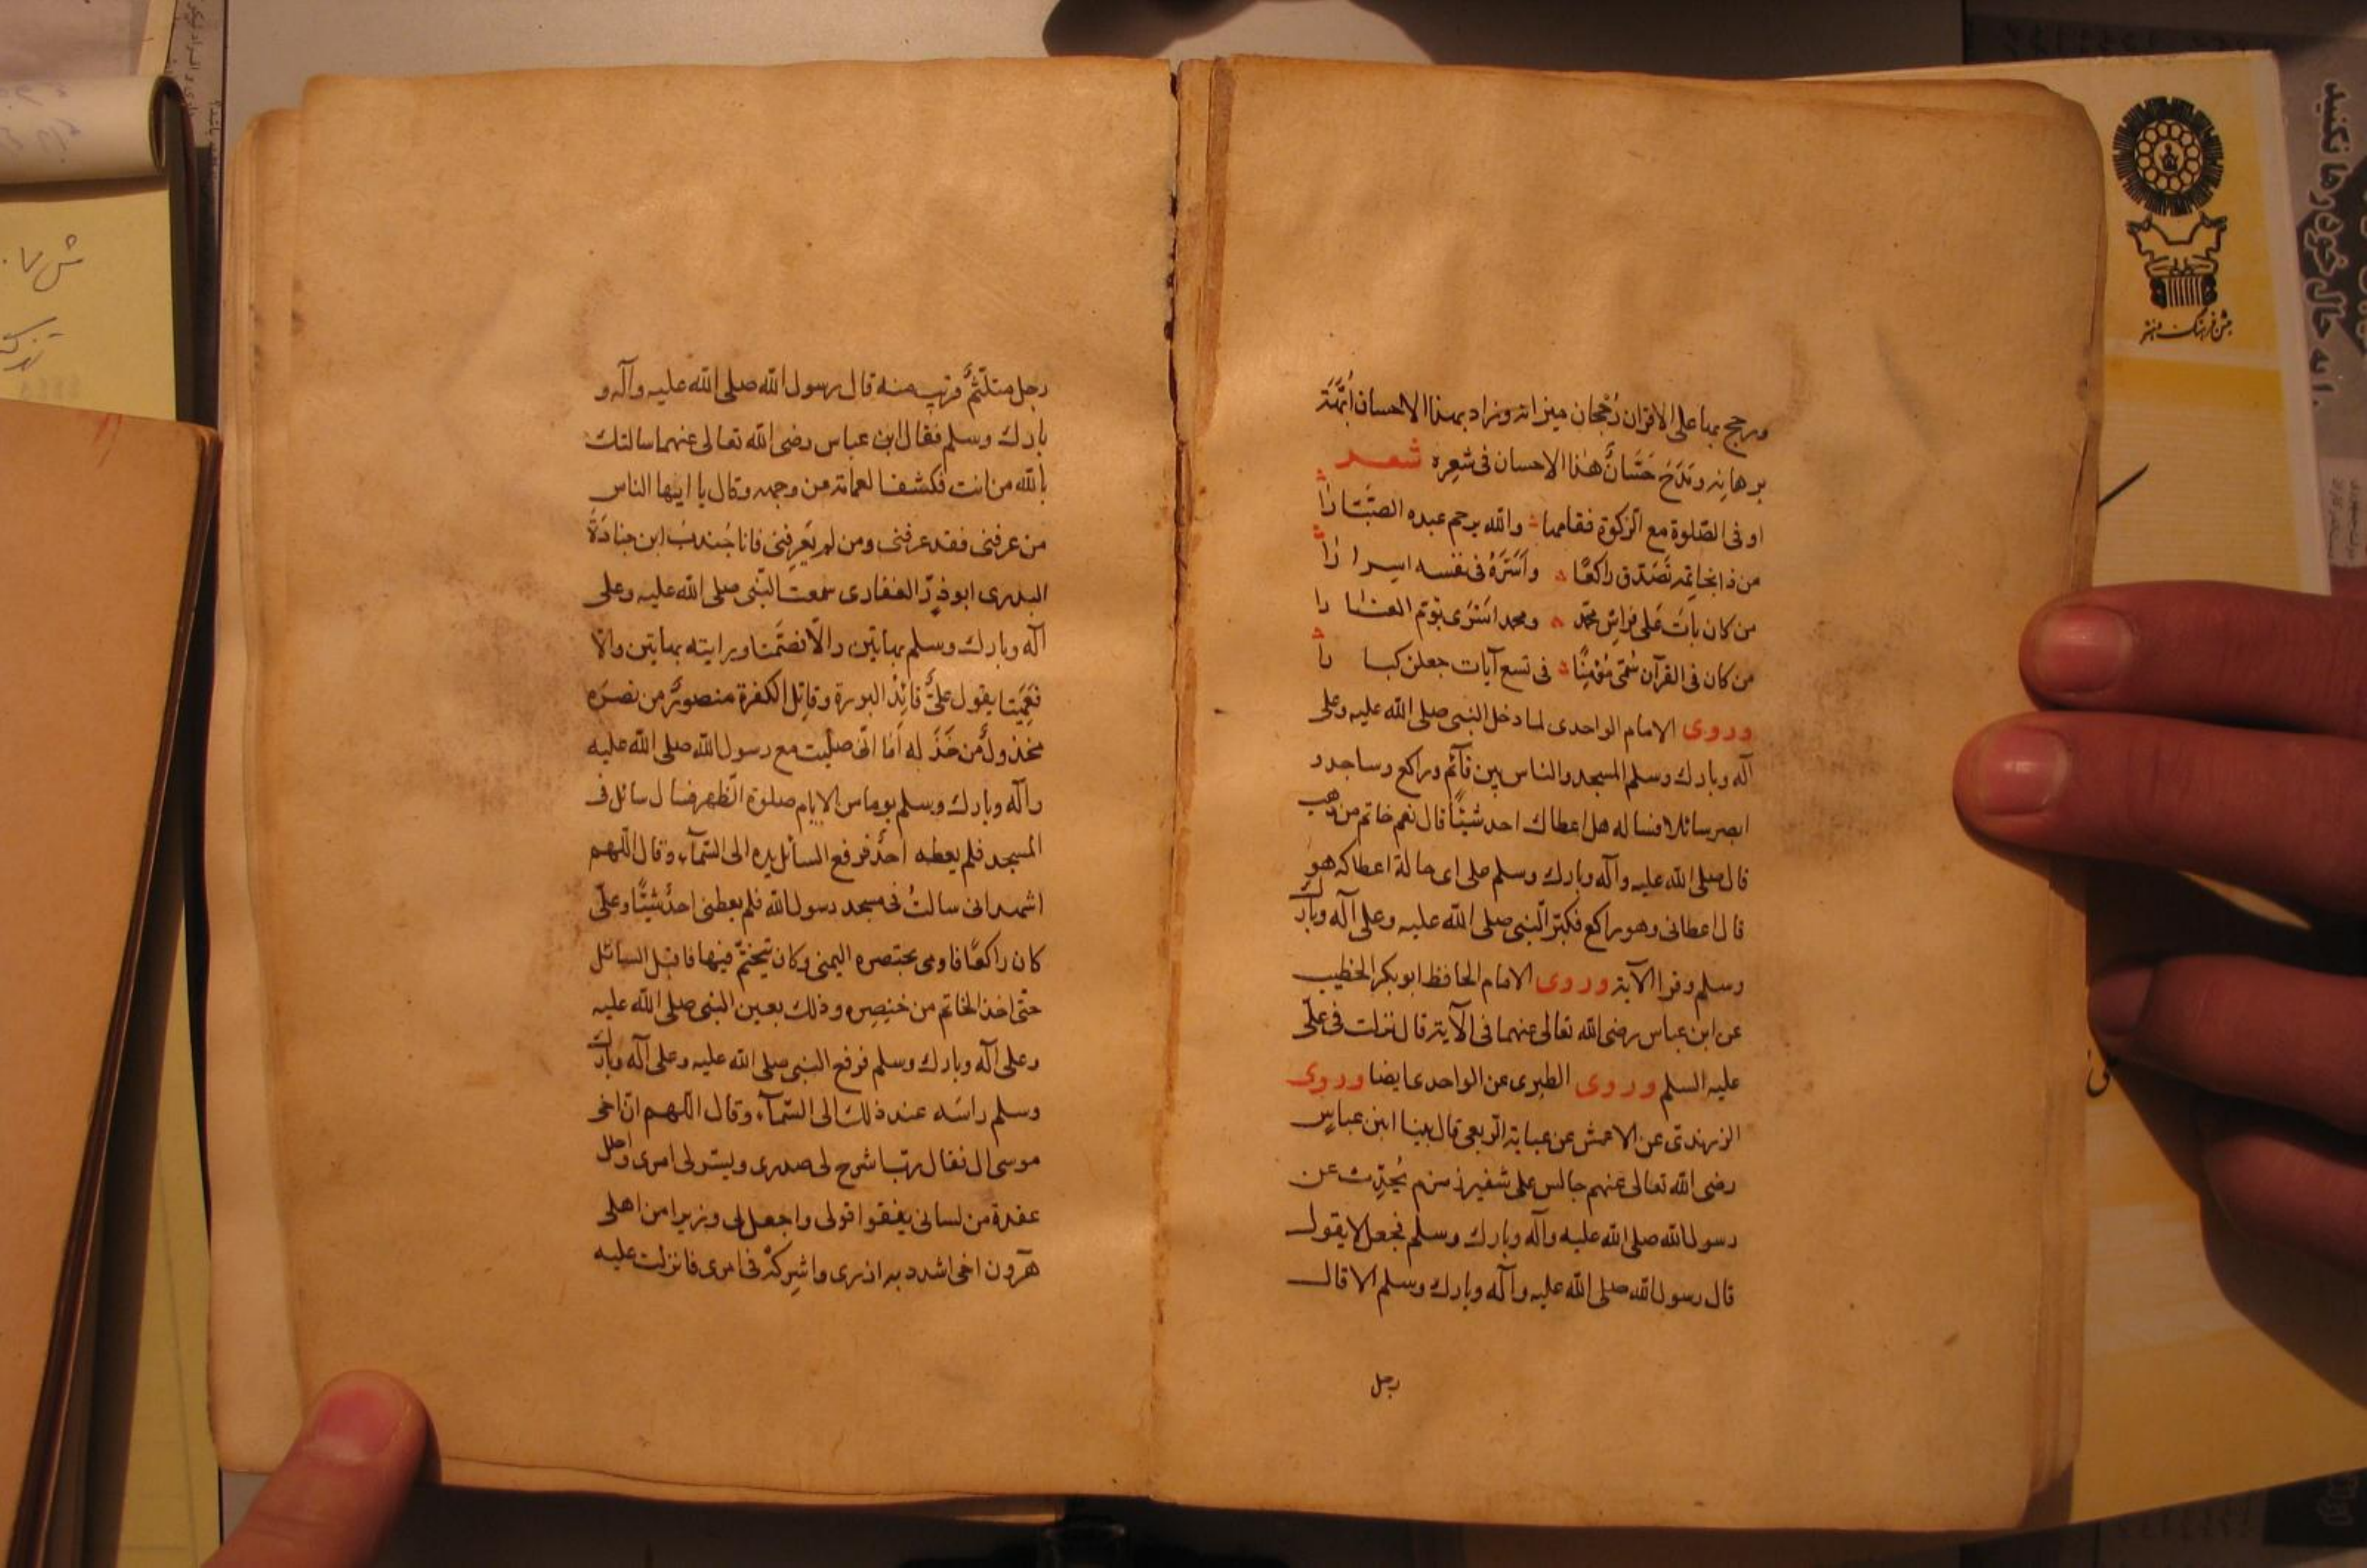 ورجح بها على الاقران رُجحان ميزانه وزاد بهذا الاحسان اُبَّهَة
برهانه ومَدَح حَسَّانُ هذا الاحسان فى شعِره شعر
اوفى الصّلوة مع الزكوة فقامها والله يرحم عبده الصبّارا
من ذا بخاتمه تَصَدّق راكعًا واَسَرَّهُ فى نفسه اسرارا
من كان باتَ عَلى فراش محمّد ومحمد اسَرى يؤم الغارا
من كان فى القرآن سُمّى مُؤمِنًا فى تسع آيات جعلن كبارا
وروى الامام الواحدى لما دخل النبى صلى الله عليه وعلى
آله وبارك وسلم المسجد والناس بين قآئم وراكع وساجد و
ابصر سائلا فساله هل اعطاك احد شيئًا قال نعم خاتم من ذهب
قال صلى الله عليه وآله وبارك وسلم على اى حالة اعطاكه هو
قال اعطانى وهو راكع فكبّر النّبى صلى الله عليه وعلى آله وبارك
وسلم وقرا الآية وروى الامام الحافظ ابو بكر الخطيب
عن ابن عباس رضى الله تعالى عنهما فى الآية قال نزلت فى علّى
عليه السلم وروى الطبرى عن الواحدى ايضا وروى
الزرندى عن الاعمش عن عباية الربعى قال بينا ابن عباسٍ
رضى الله تعالى عنهم جالس على شفير زمزم يُحدِّث عن
رسول الله صلى الله عليه وآله وبارك وسلم فجعل لا يقول
قال رسول الله صلى الله عليه وآله وبارك وسلم الا قال
رجل
رجل متلّثمٌ قرُب منه قال رسول الله صلى الله عليه وآله و
بارك وسلم فقال ابن عباس رضى الله تعالى عنهما سالتك
بالله من انت فكشف العمامة من وجهه وقال يا ايها الناس
من عرفنى فقد عرفنى ومن لم يَعرِفنى فانا جُندبُ ابن جنادَةَ
البدرى ابو ذرّ الغفارى سمعت النّبى صلى الله عليه وعلى
آله وبارك وسلم بهاتين والّا فصَمّتا ورايته بهاتين والا
فعَمِيَتا يقول علىٌّ قائِدُ البررة وقاتِل الكفرة منصورٌ من نصَره
مخذولٌ من خَذَله اَما انّى صلّيت مع رسول الله صلى الله عليه
وآله وبارك وسلم يوما من الايام صلوة الظهر فسال سائل فى
المسجد فلم يعطه احدٌ فرفع السائل يده الى السّمآء وقال اللّهم
اشهد انى سالتُ فى مسجد رسول الله فلم يعطنى احدٌ شيئًا وعلّى
كان راكعًا فاومى بخنصره اليمنى وكان يتختّم فيها فاقبل السائل
حتّى اخذ الخاتم من خنصِره وذلك بعين النبى صلى الله عليه
وعلى آله وبارك وسلم فرفع النبى صلى الله عليه وعلى آله وبارك
وسلم راسَه عند ذلك الى السّمآء وقال اللّهم انّ اخى
موسى سال فقال رب اشرح لى صدرى ويسّر لى امرى واحلل
عقدة من لسانى يفقهوا قولى واجعل لى وزيرا من اهلى
هرون اخى اشدد به ازرى واشرِكهُ فى امرى فانزلت عليه
جشن فرهنگ و هنر